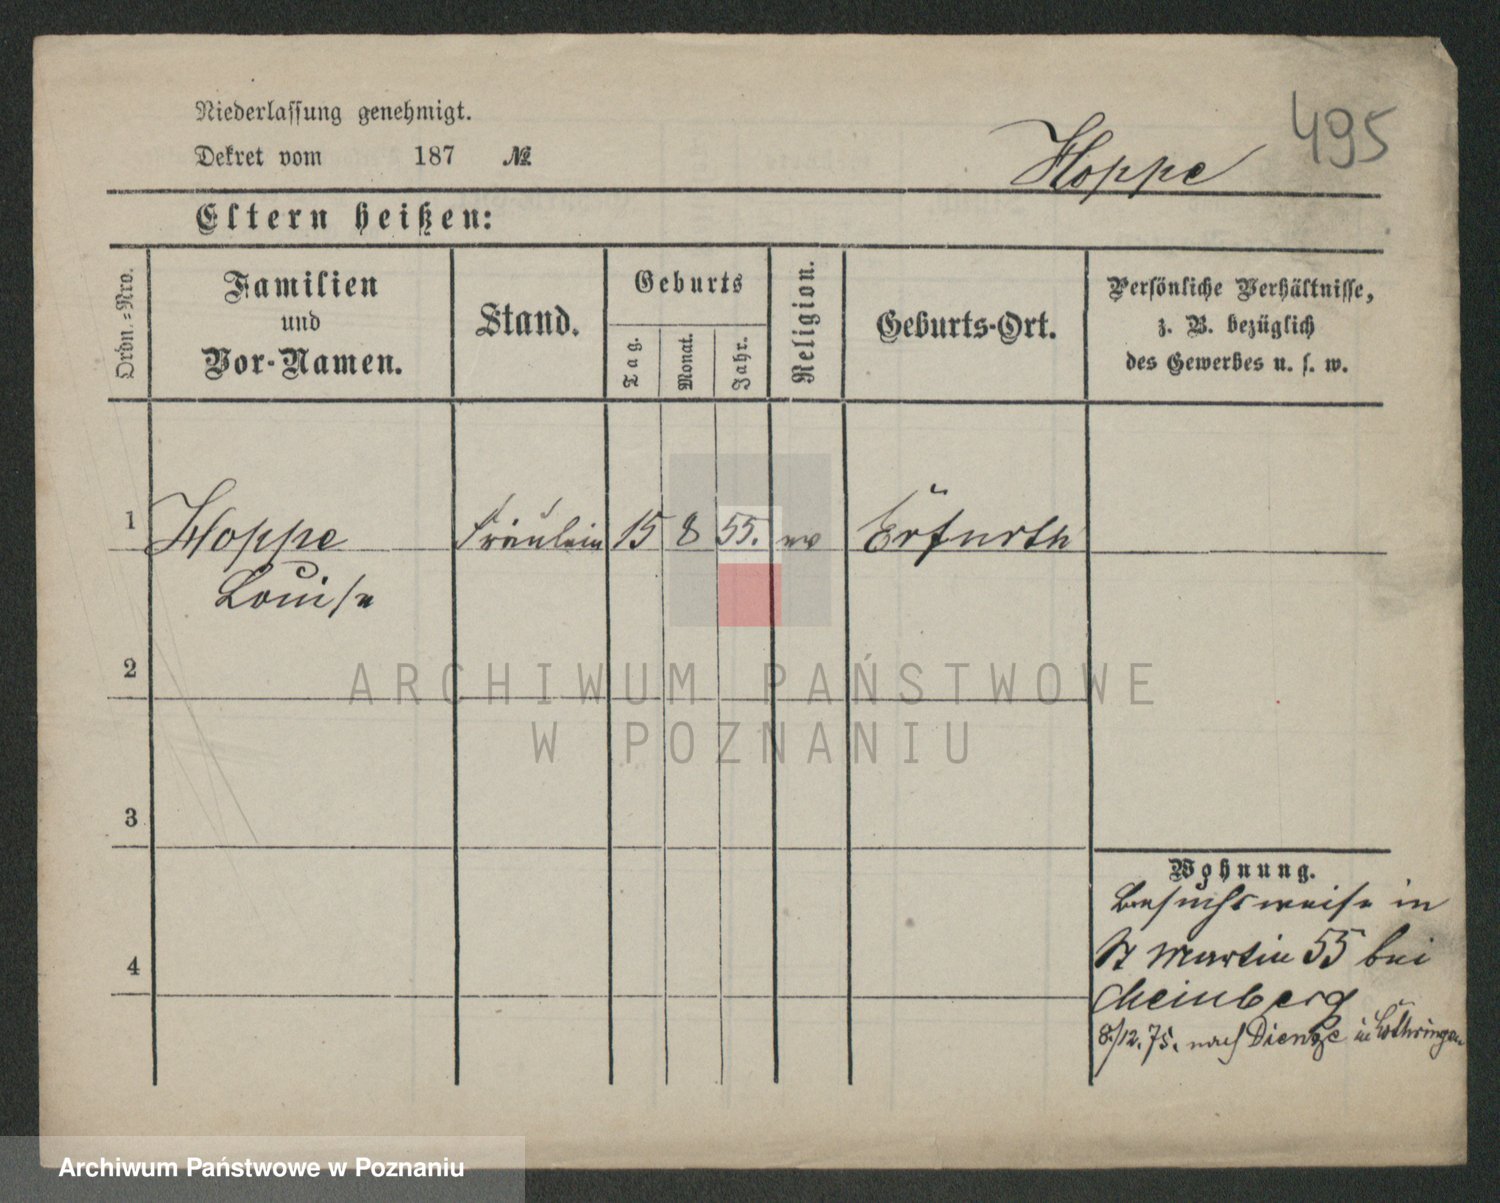 495
Niederlassung genehmigt.
Dekret vom 187 №
Hoppe
Eltern heißen:
Ordn.=Nro.
Familien
und
Vor-Namen.
Stand.
Geburts
Tag.
Monat.
Jahr.
Religion.
Geburts-Ort.
Persönliche Verhältnisse,
z. B. bezüglich
des Gewerbes u. s. w.
1 Hoppe Fräulein 15 8 55. ev Erfurth
Louise
2
3
4
Wohnung.
Besuchsweise in
St Martin 55 bei
Meinberg
8/12.75. nach Dieuze in Lothringen
ARCHIWUM PAŃSTWOWE
W POZNANIU
Archiwum Państwowe w Poznaniu